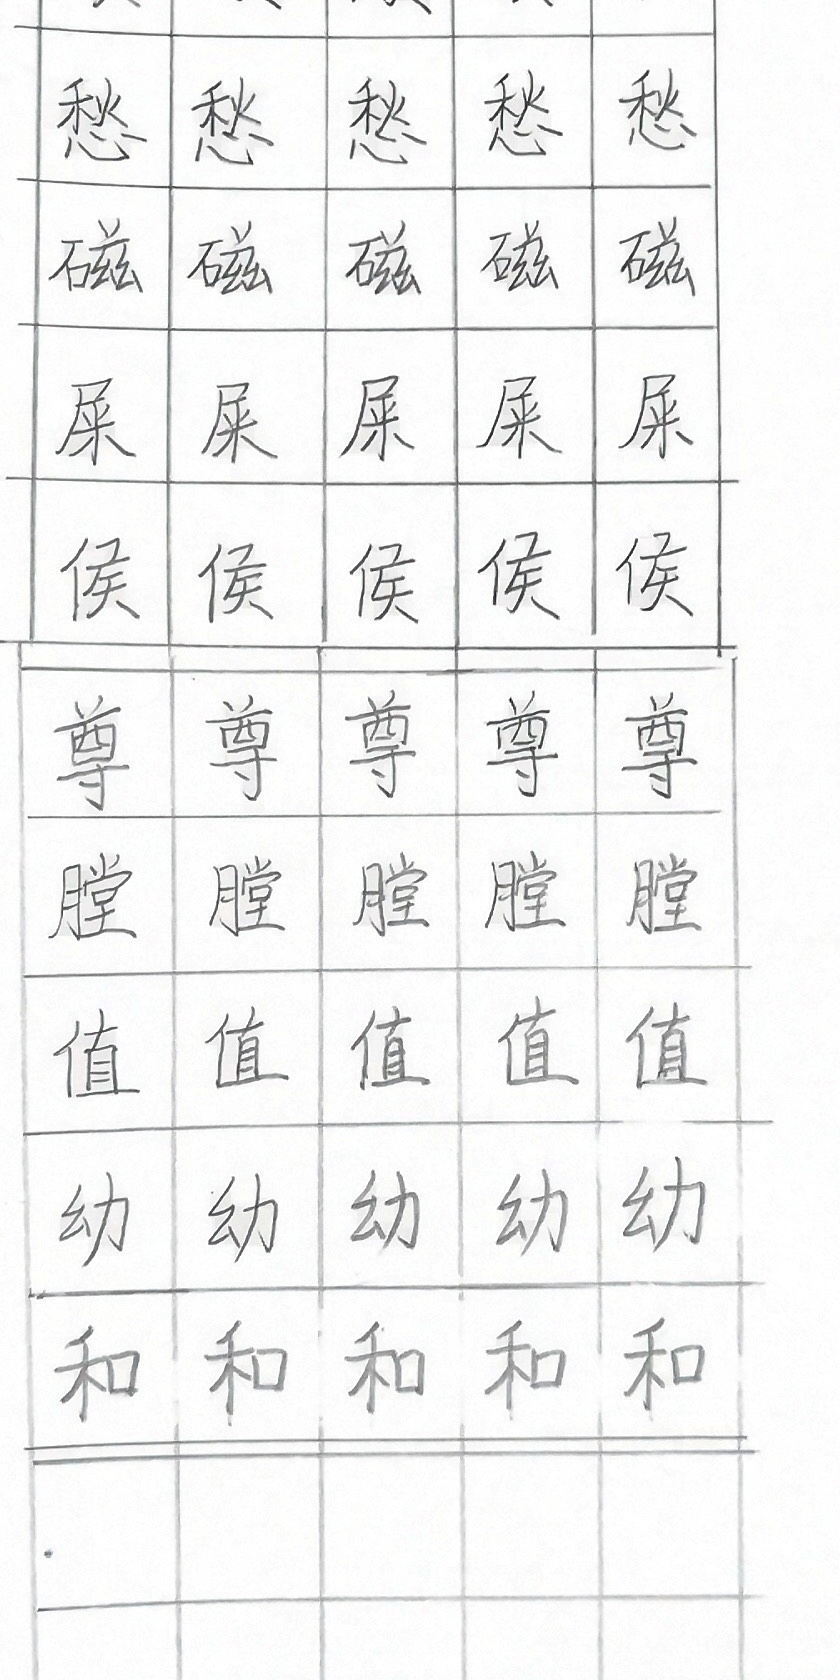 愁 愁 愁 愁 愁
磁 磁 磁 磁 磁
屎 屎 屎 屎 屎
侯 侯 侯 侯 侯
尊 尊 尊 尊 尊
膛 膛 膛 膛 膛
值 值 值 值 值
幼 幼 幼 幼 幼
和 和 和 和 和